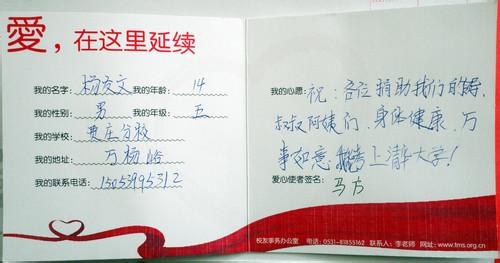 愛，在这里延续
我的名字：杨文 我的年龄：14
我的性别：男 我的年级：五
我的学校：贾庄分校
我的地址：万杨峪
我的联系电话：15053995312
我的心愿：祝：各位捐助我们的
叔叔阿姨们，身体健康，万
事如意，考上清华大学！
爱心使者签名：马方
校友事务办公室 电话：0531-81855162 联系人：李老师 网址：www.tms.org.cn